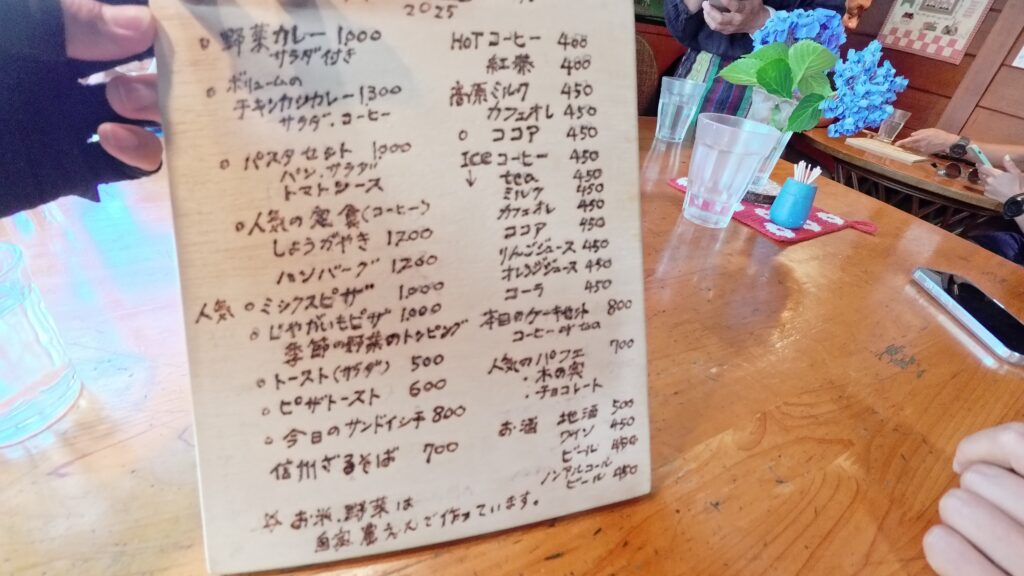 2025
○ 野菜カレー 1,000
サラダ付き
○ ボリュームの
チキンカツカレー 1300
サラダ・コーヒー
○ パスタセット 1,000
パン、サラダ
トマトソース
○人気の定食(コーヒー)
しょうがやき 1200
ハンバーグ 1200
人気 ○ ミックスピザ 1,000
○ じゃがいもピザ 1,000
季節の野菜のトッピング
○ トースト(サラダ) 500
○ ピザトースト 600
○ 今日のサンドイッチ 800
信州ざるそば 700
HOT コーヒー 400
紅茶 400
高原ミルク 450
カフェオレ 450
○ ココア 450
ICE コーヒー 450
↓ tea 450
ミルク 450
カフェオレ 450
ココア 450
りんごジュース 450
オレンジジュース 450
コーラ 450
本日のケーキセット 800
コーヒー or tea
人気のパフェ 700
・木の実
・チョコレート
お酒 地酒 500
ワイン 450
ビール 450
ノンアルコール
ビール 450
※ お米、野菜は
自家農えんで作っています。